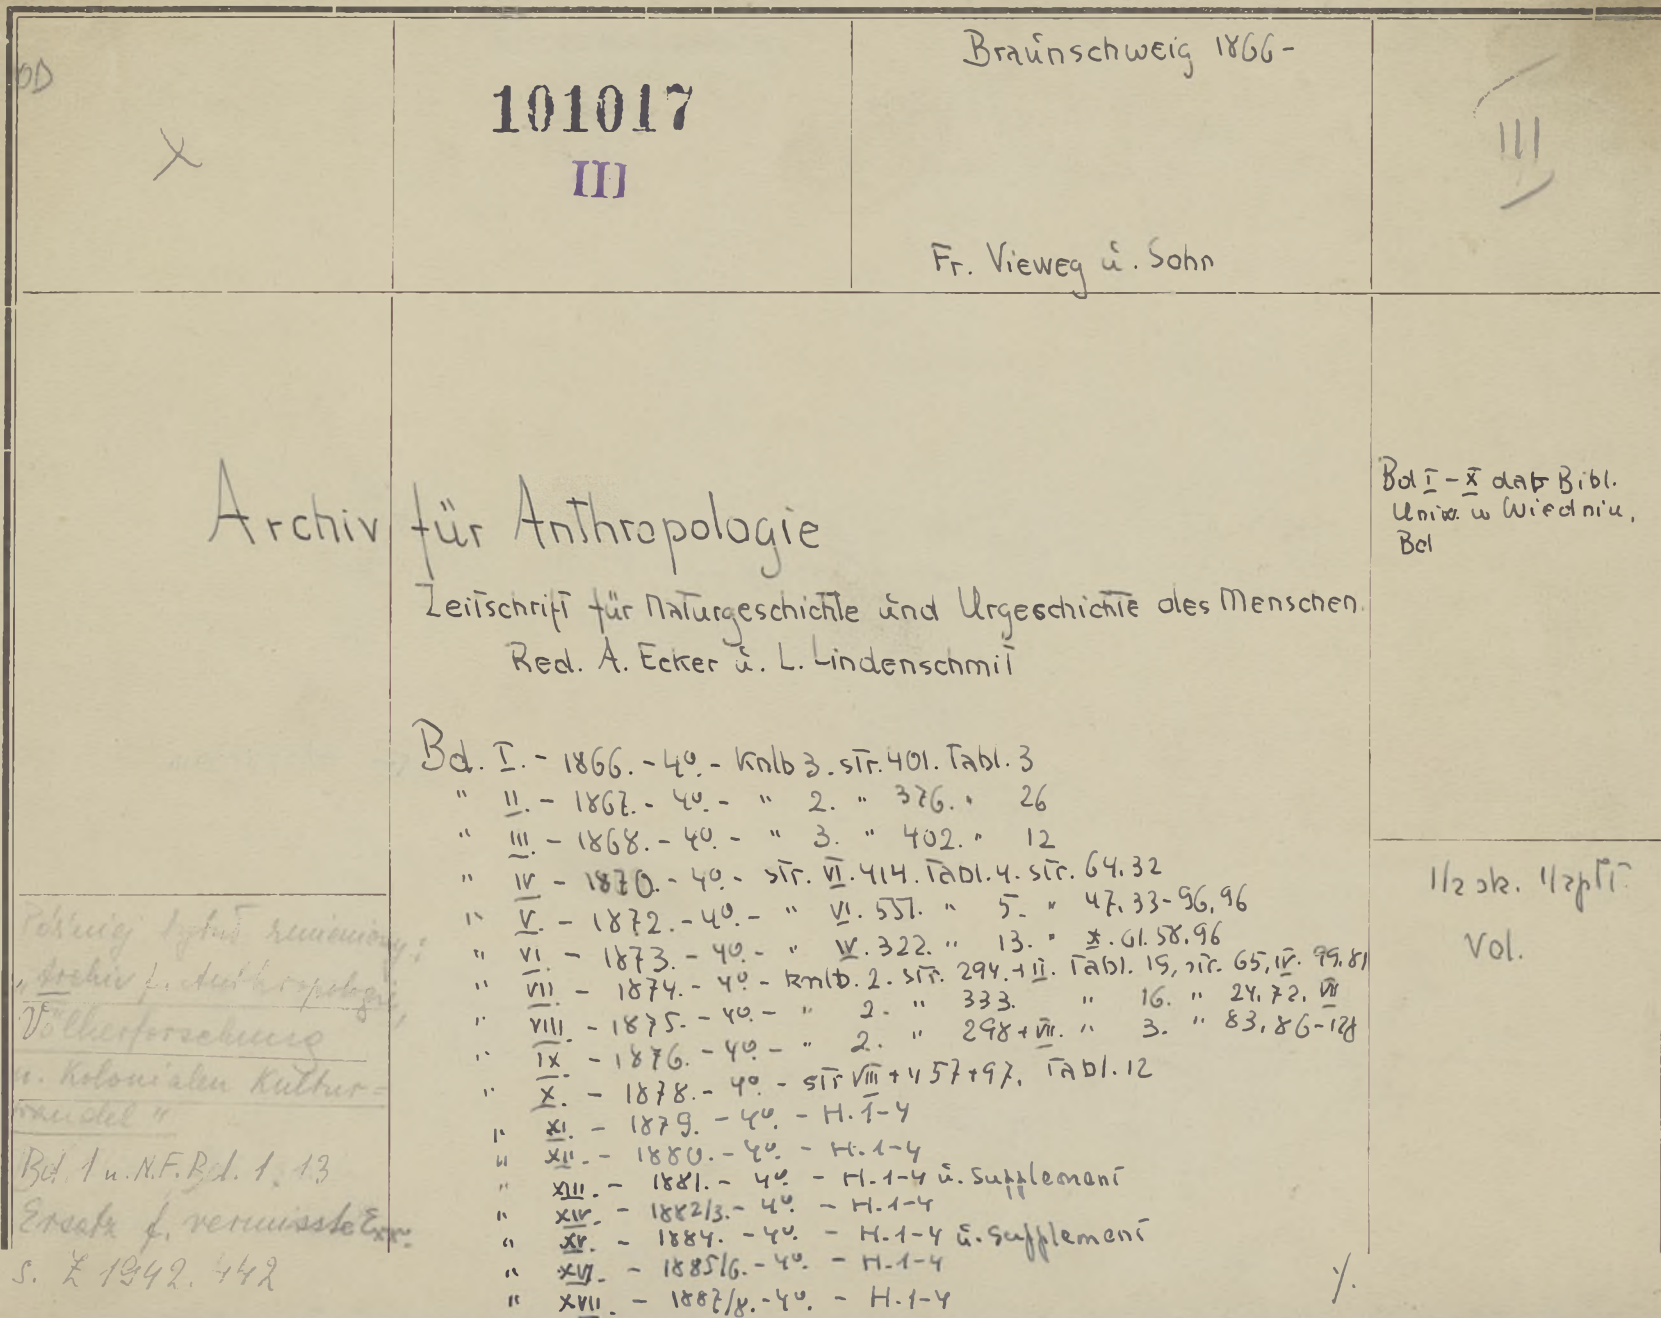 OD
X
101017
III
Braunschweig 1866-
Fr. Vieweg u. Sohn
III
Archiv für Anthropologie
Zeitschrift für Naturgeschichte und Urgeschichte des Menschen.
Red. A. Ecker u. L. Lindenschmit
Bd I - X dar Bibl.
Uniw. w Wiedniu,
Bd
Bd. I. - 1866. - 4º. - knlb 3. str. 401. Tabl. 3
" II. - 1867. - 4º. - " 2. " 376. " 26
" III. - 1868. - 4º. - " 3. " 402. " 12
" IV - 1870. - 4º. - str. VI. 414. Tabl. 4. str. 64. 32
" V. - 1872. - 4º. - " VI. 551. " 5. " 47. 33-96, 96
" VI. - 1873. - 4º. - " IV. 322. " 13. " X. 61. 58. 96
" VII - 1874. - 4º - knlb. 2. str. 294. + II. Tabl. 15, str. 65, IV. 99. 81
" VIII - 1875. - 4º. - " 2. " 333. " 16. " 24. 72. VII
" IX - 1876. - 4º. - " 2. " 298 + VII. " 3. " 83, 86-128
" X. - 1878. - 4º. - str VIII + 457 + 97, Tabl. 12
" XI. - 1879. - 4º. - H. 1-4
" XII. - 1880. - 4º. - H. 1-4
" XIII. - 1881. - 4º - H. 1-4 u. Supplement
" XIV. - 1882/3. - 4º. - H. 1-4
" XV. - 1884. - 4º. - H. 1-4 u. Supplement
" XVI. - 1885/6. - 4º. - H. 1-4
" XVII. - 1887/8. - 4º. - H. 1-4
1/2 sk. 1/2 płt.
Vol.
Później tytuł zmieniony:
"Archiv f. Anthropologie,
Völkerforschung
u. kolonialen Kultur=
wandel"
Bd. 1 u. N.F. Bd. 1. 13
Ersatz f. vermisste Exx.
s. Z 1942. 442